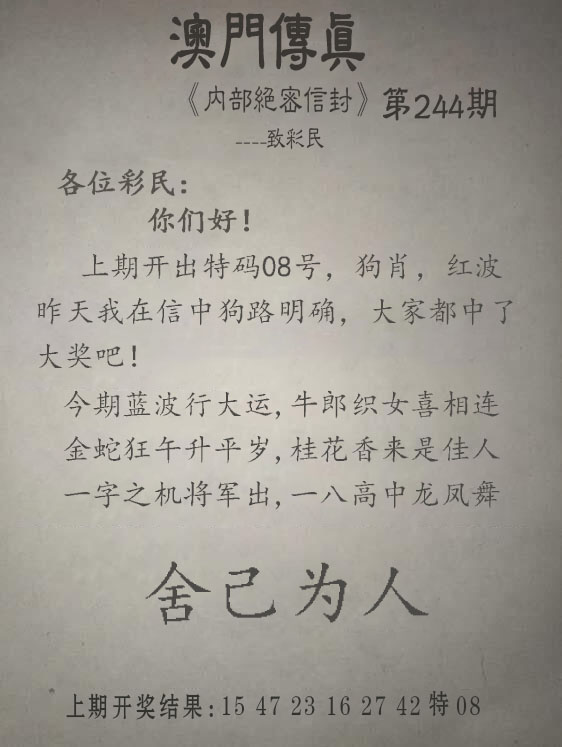 澳門傳真
《内部絕密信封》第244期
----致彩民
各位彩民:
你们好!
上期开出特码08号，狗肖，红波
昨天我在信中狗路明确，大家都中了
大奖吧!
今期蓝波行大运,牛郎织女喜相连
金蛇狂午升平岁,桂花香来是佳人
一字之机将军出,一八高中龙凤舞
舍己为人
上期开奖结果:15 47 23 16 27 42 特 08